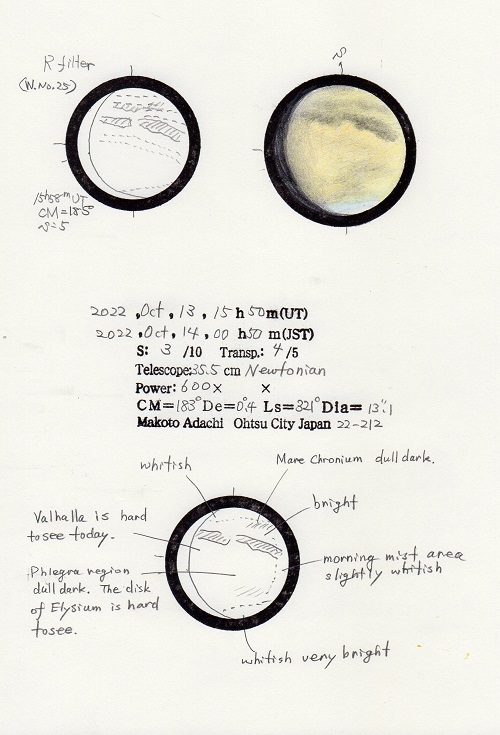 R filter
(W.No.25)
S
15h58m UT
CM=185°
S=5
2022, Oct, 13, 15 h 50 m (UT)
2022, Oct, 14, 00 h 50 m (JST)
S: 3 /10 Transp.: 4 /5
Telescope: 35.5 cm Newtonian
Power: 600 × ×
CM=183° De=0°.4 Ls=321° Dia= 13".1
Makoto Adachi Ohtsu City Japan 22-212
whitish
Mare Chronium dull dark.
bright
Valhalla is hard
to see today.
morning mist area
slightly whitish
Phlegra region
dull dark. The disk
of Elysium is hard
to see.
whitish very bright